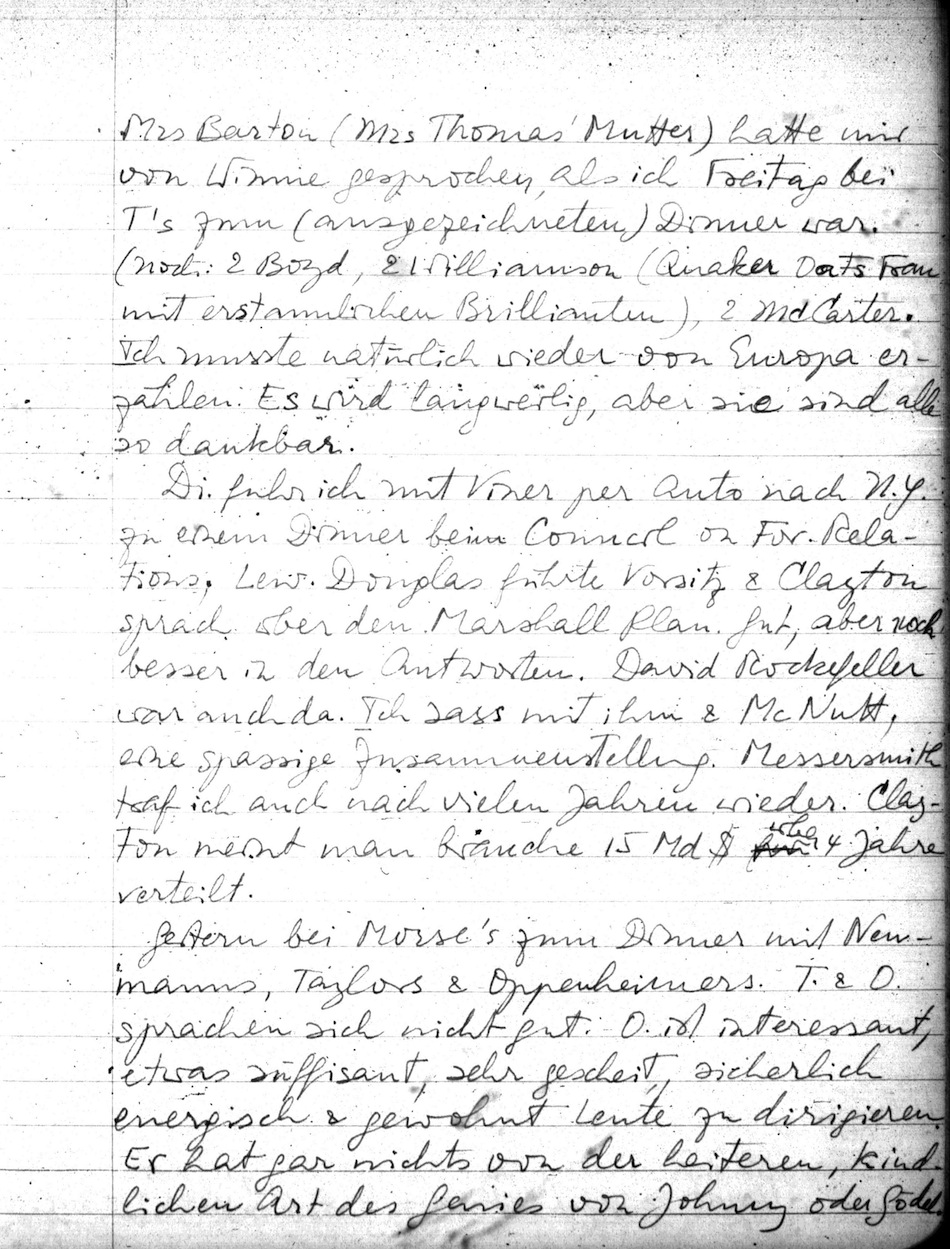 Mrs Barton (Mrs Thomas' Mutter) hatte mir
von Winnie gesprochen, als ich Freitag bei
T's zum (ausgezeichneten) Dinner war.
(noch: 2 Boyd, 2 Williamson (Quaker Oats Frau
mit erstaunlichen Brillianten), 2 McCarter.
Ich musste natürlich wieder von Europa er-
zählen. Es wird langweilig, aber sie sind alle
so dankbar.
Di. fuhr ich mit Viner per Auto nach N.Y.
zu einem Dinner beim Council on For. Rela-
tions, Lew. Douglas führte Vorsitz & Clayton
sprach über den Marshall Plan. Gut, aber noch
besser in den Antworten. David Rockefeller
war auch da. Ich sass mit ihm & McNutt,
eine spassige Zusammenstellung. Messersmith
traf ich auch nach vielen Jahren wieder. Clay-
ton meint man bräuche 15 Md $ über 4 Jahre
verteilt.
Gestern bei Morse's zum Dinner mit Neu-
manns, Taylors & Oppenheimers. T. & O.
sprachen sich nicht gut. O. ist interessant,
etwas süffisant, sehr gescheit, sicherlich
energisch & gewohnt Leute zu dirigieren.
Er hat gar nichts von der heiteren, kind-
lichen Art des Genies von Johnny oder Gödel.